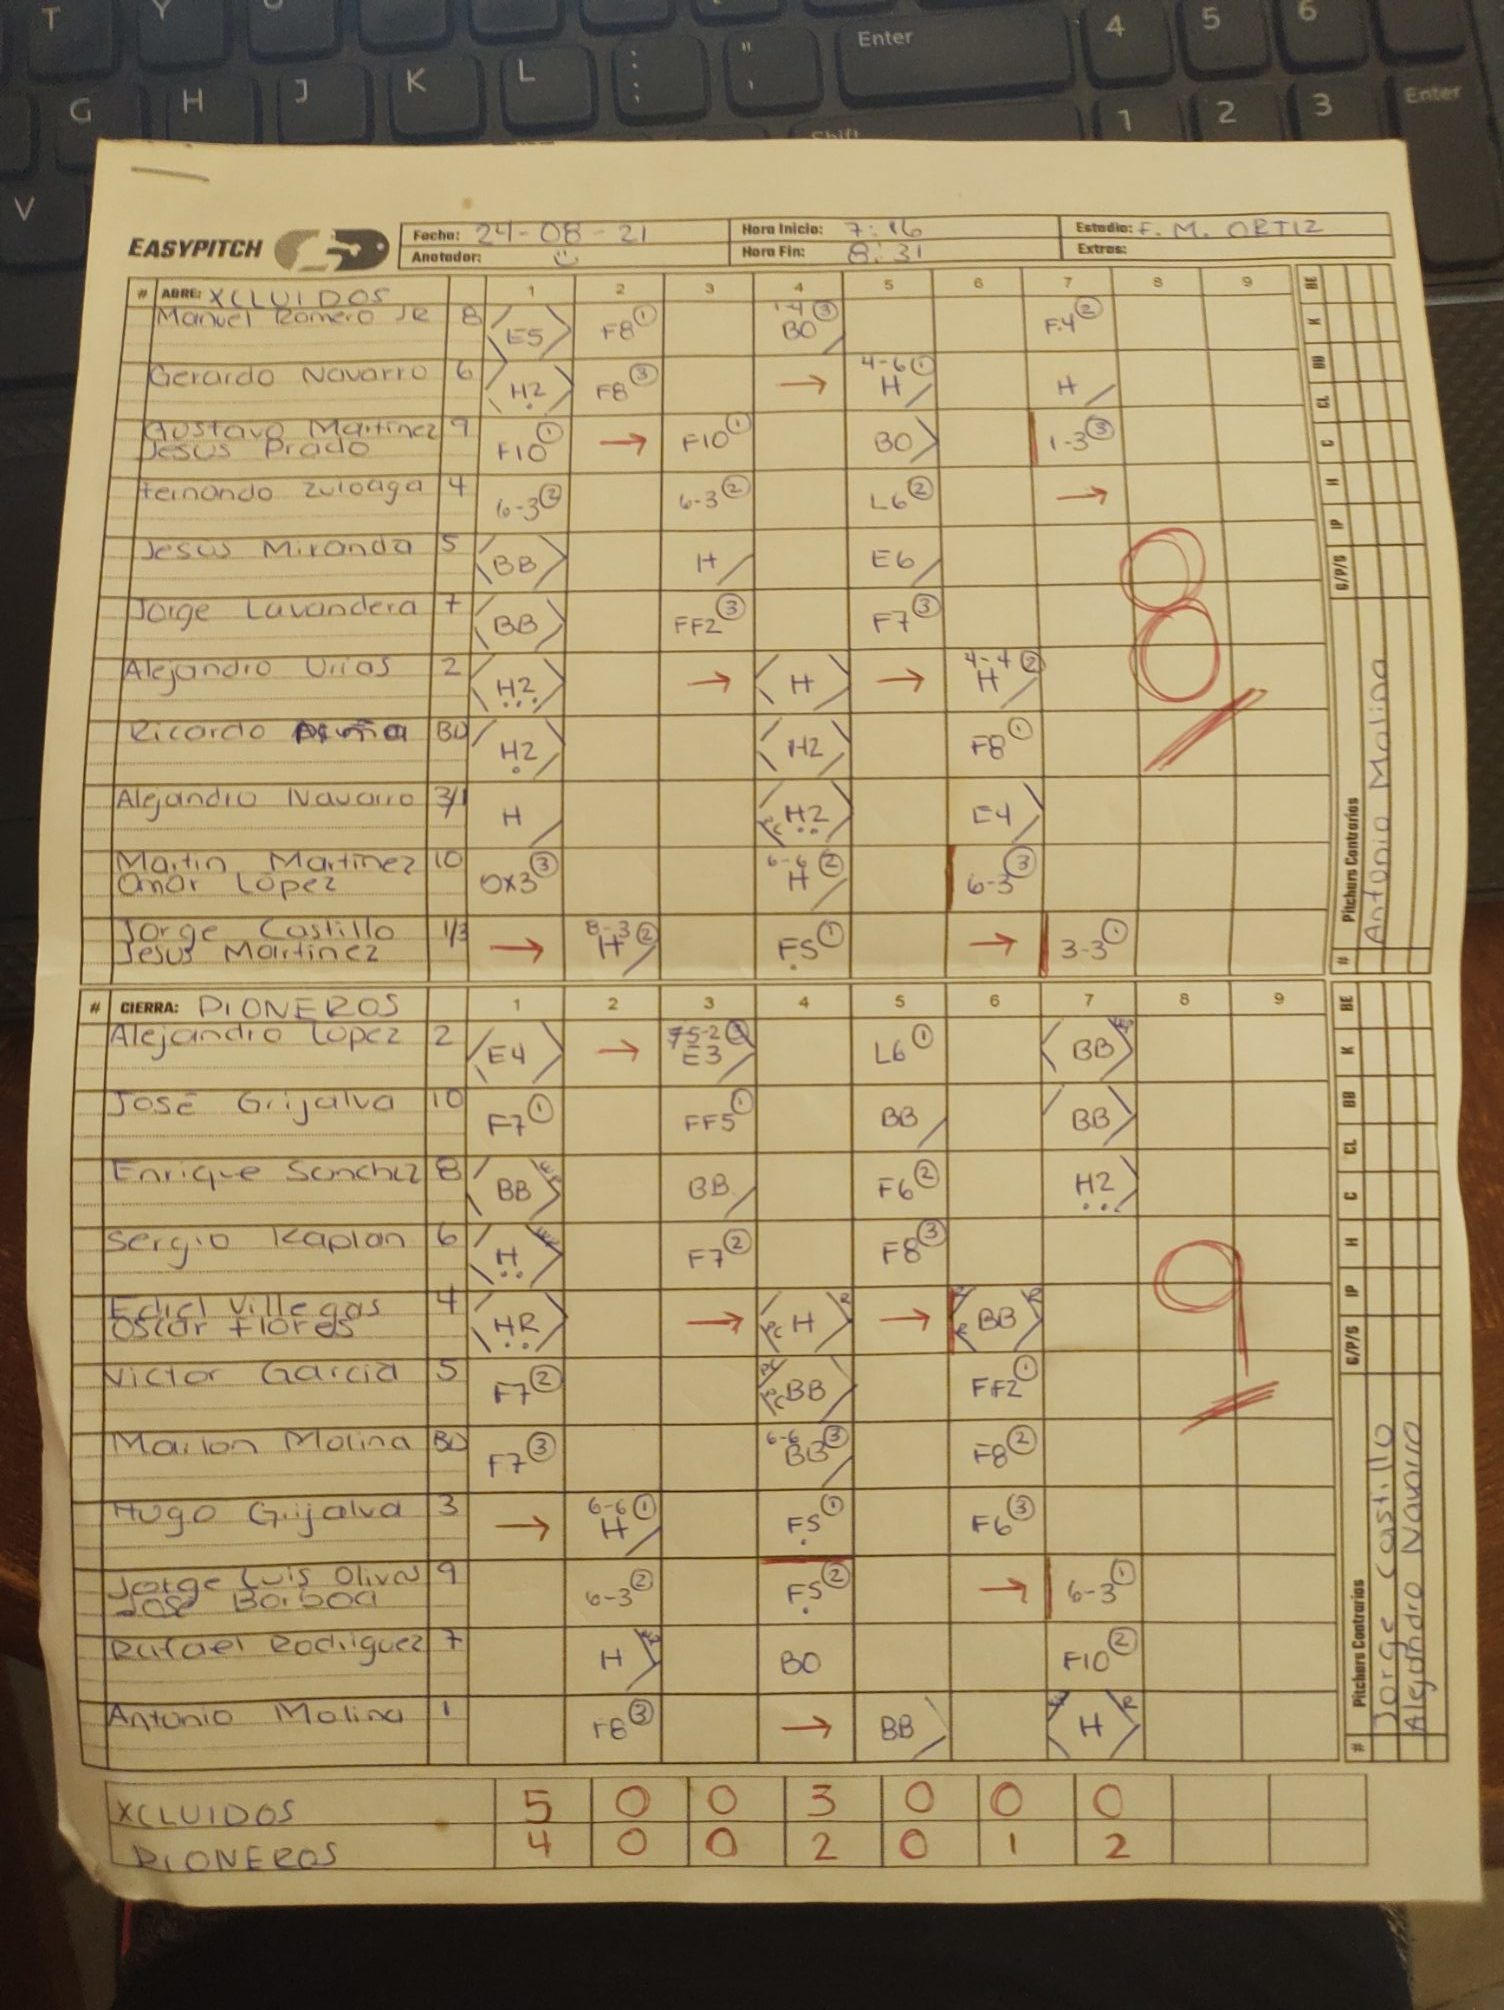 T Y
G H J K L : ; " ' Enter 4 5 6
V Shift 1 2 3 Enter
EASYPITCH
Fecha: 24-08-21 Hora Inicio: 7:16 Estadio: F. M. ORTIZ
Anotador: Hora Fin: 8:31 Extras:
# ABRE: XCLUIDOS 1 2 3 4 5 6 7 8 9
Manuel Romero JR 8 E5 F8 1 1-4 3 BO F4 2
Gerardo Navarro 6 H2 F8 3 → 4-6 1 H H
Gustavo Martinez 9 F10 1 → F10 1 BO 1-3 3
Jesus Prado
Fernando Zuloaga 4 6-3 2 6-3 2 L6 2 →
Jesus Miranda 5 BB H E6
Jorge Lavandera 7 BB FF2 3 F7 3
Alejandro Urias 2 H2 → H → 4-4 2 H
Ricardo BD H2 H2 F8 1
Alejandro Navarro 3/1 H H2 E4
Martin Martinez 10 0x3 3 6-6 2 H 6-3 3
Omar Lopez
Jorge Castillo 1/3 → 8-3 2 H F5 1 → 3-3 1
Jesus Martinez
8
BE K BB CL C H IP G/P/S
# Pitchers Contrarios
Antonio Molina
# CIERRA: PIONEROS 1 2 3 4 5 6 7 8 9
Alejandro Lopez 2 E4 → 5-2 3 E3 L6 1 BB
José Grijalva 10 F7 1 FF5 1 BB BB
Enrique Sanchez 8 BB BB F6 2 H2
Sergio Kaplan 6 H F7 2 F8 3
Ediel Villegas 4 HR → H → BB
Oscar Flores
Victor Garcia 5 F7 2 BB FF2 1
Marlon Molina BD F7 3 6-6 3 BB F8 2
Hugo Grijalva 3 → 6-6 1 H F5 1 F6 3
Jorge Luis Olivas 9 6-3 2 F5 2 → 6-3 1
José Barboa
Rafael Rodriguez 7 H BO F10 2
Antonio Molina 1 F8 3 → BB H
9
BE K BB CL C H IP G/P/S
# Pitchers Contrarios
Jorge Castillo
Alejandro Navarro
XCLUIDOS 5 0 0 3 0 0 0
PIONEROS 4 0 0 2 0 1 2